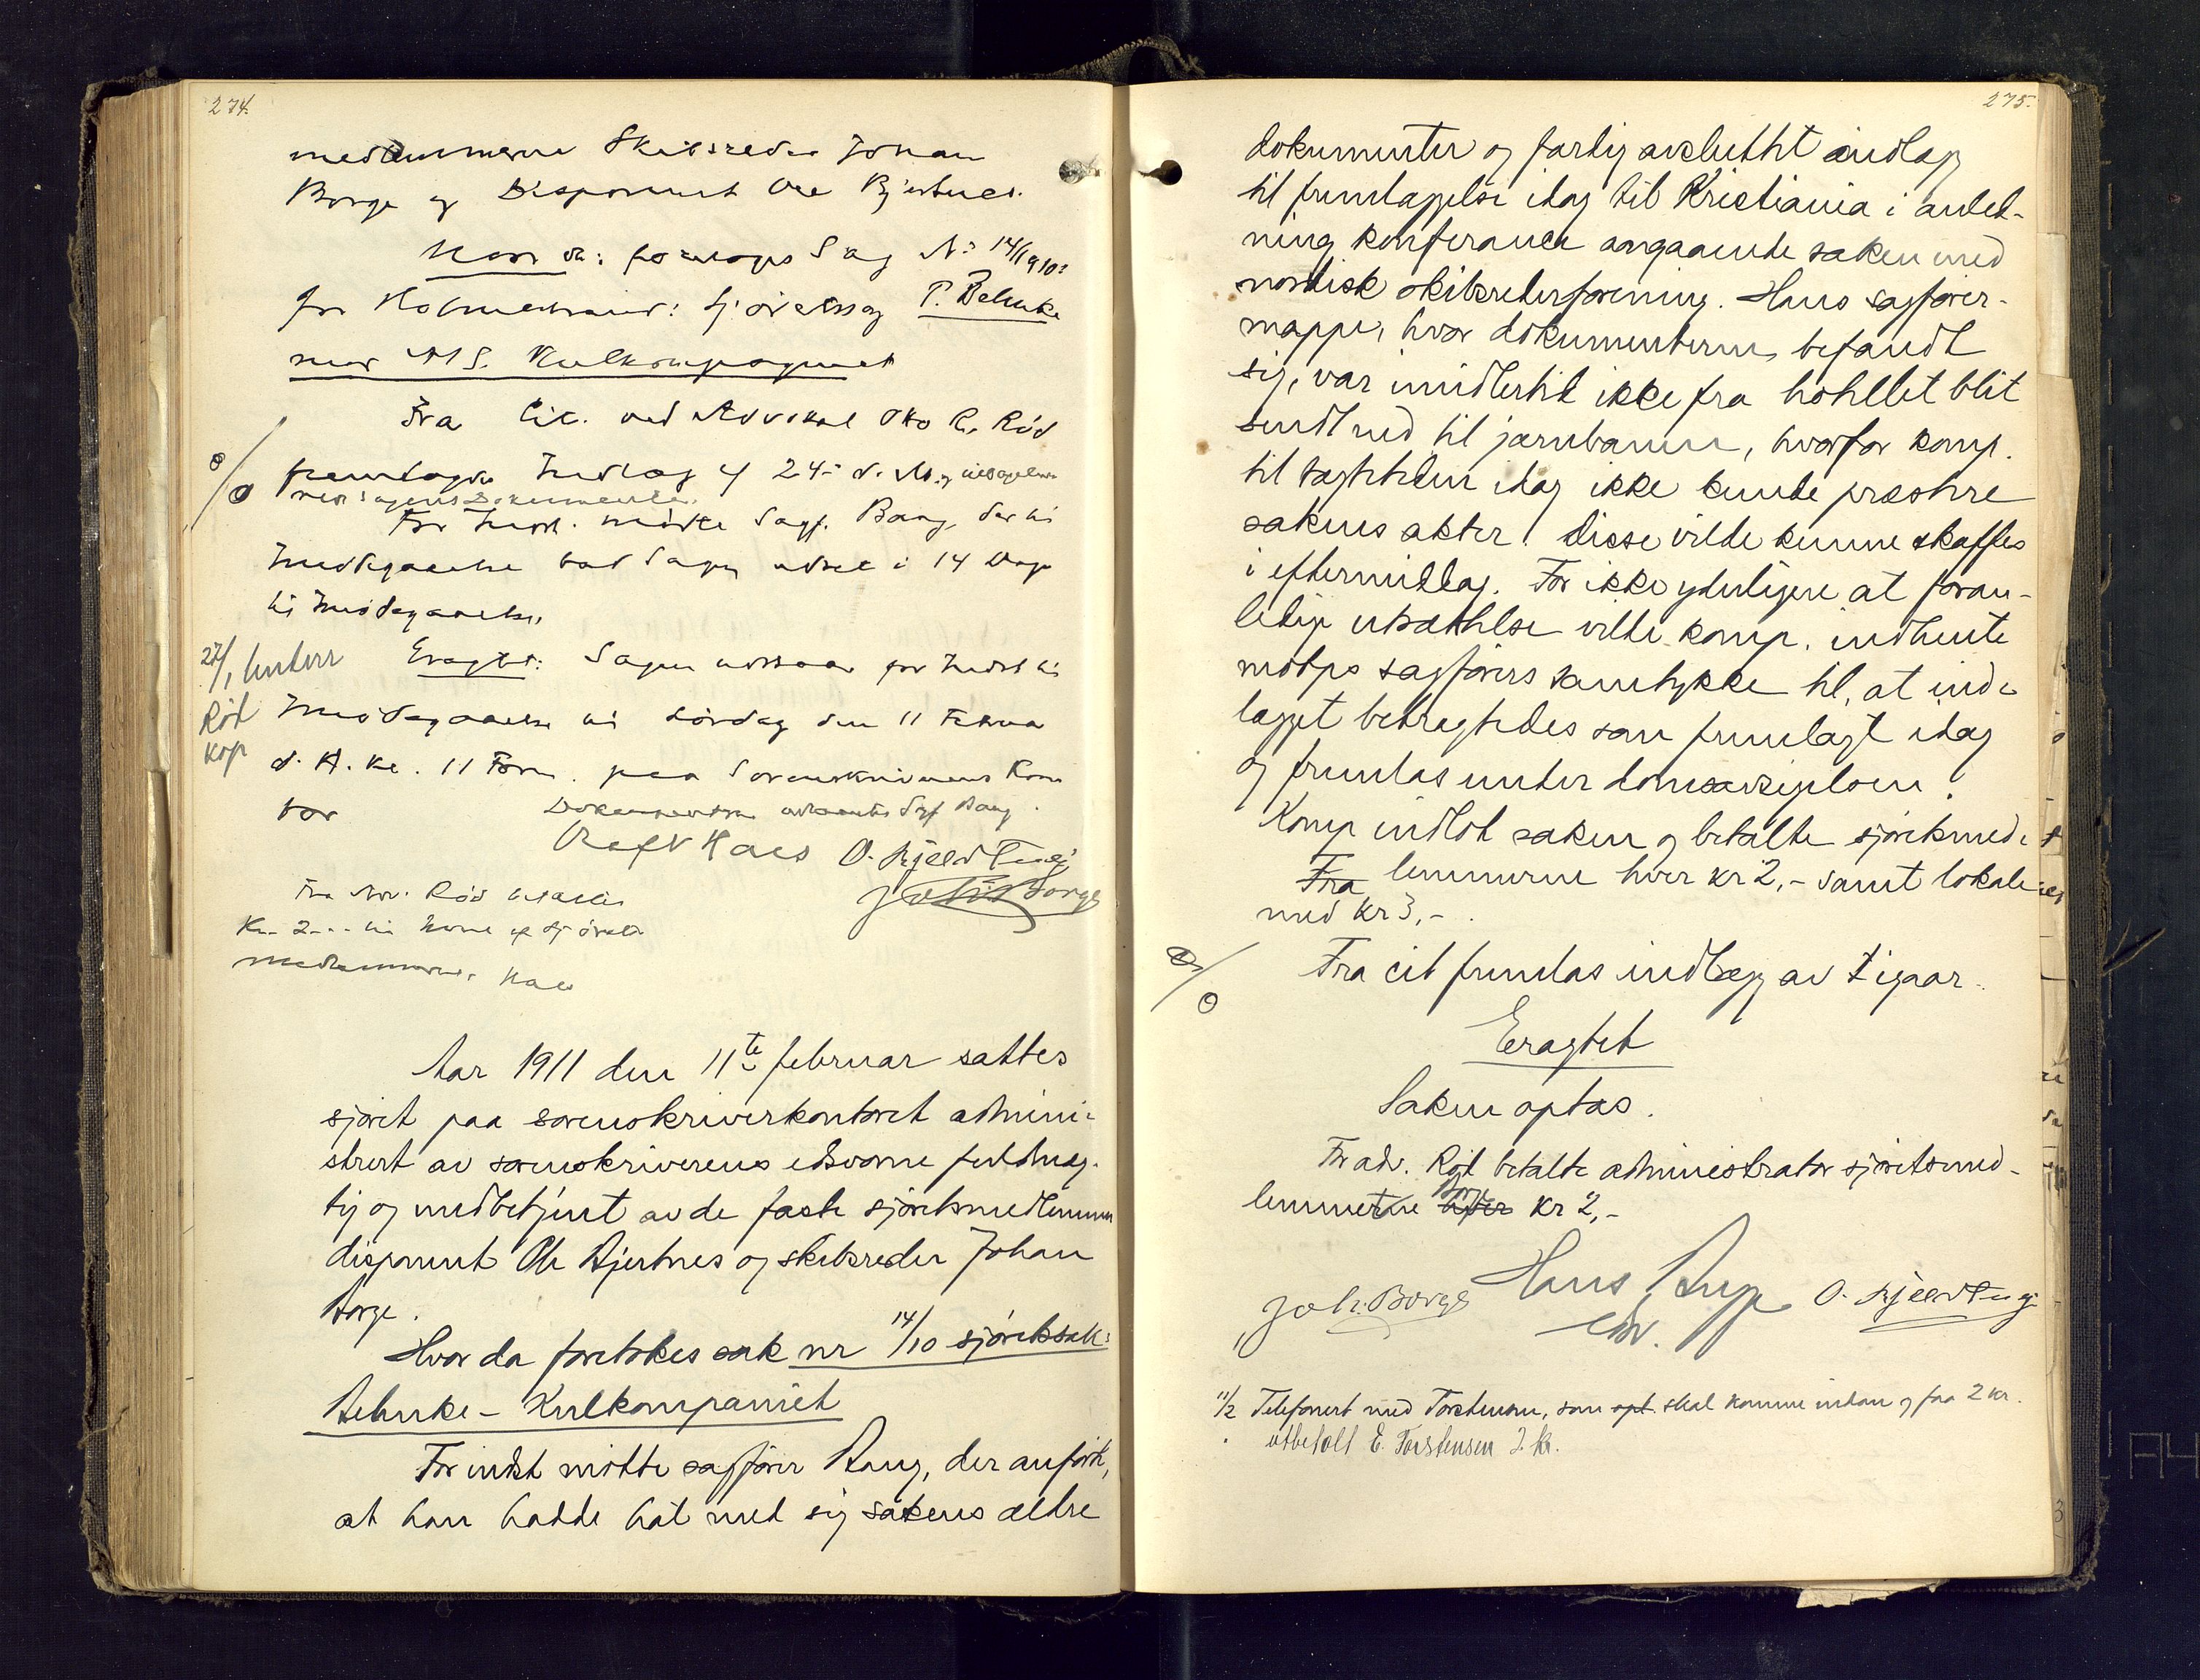 274.
medlemmerne Skibsreder Johan
Borge og Disponent Ole Bjertnes.
Hvor da: foretoges Sag No 14/1910:
for Holmestrand: Sjøretssag P. Behnke
mod A/S. Kulkompagniet
Fra Cit. ved Advokat Otto R. Röd
fremlagdes Indlæg af 24de d. M. og
med sagens Dokumenter.
For Indst. mødte Sagf. Bang, der til
Imødegaaelse bad Sagen udsat i 14 Dage
til Imødegaaelse.
Eragtet: Sagen udstaar for Indst. til
Imødegaaelse til Lördag den 11 Februar
d. A. kl. 11 Form. paa Sorenskriverens Kon
tor
Dokumenterne udlaantes Sagf Bang.
27/1
Röd
kop
O. Kjeldseng
Joh. Borge
Fra Adv. Röd betaltes
Kr. 2.-- til hver af Sjørets
medlemmerne.
Aar 1911 den 11te februar sattes
sjøret paa sorenskriverkontoret admini-
strert av sorenskriverens edsvorne fuldmæg-
tig og medbetjent av de faste sjøretsmedlemmer
disponent Ole Bjertnes og skibsreder Johan
Borge.
Hvor da foretokes sak nr 14/10 sjøretssak:
Behnke – Kulkompaniet
For indst møtte sagfører Bang, der anførte,
at han hadde hat med sig sakens ældre
275.
dokumenter og færdig avsluttet indlæg
til fremlæggelse idag til Kristiania i anled-
ning konferance angaaende saken med
nordisk skibsrederforening. Hans sagfører-
mappe, hvor dokumenterne befandt
sig, var imidlertid ikke fra hotellet blit
sendt ned til jernbanen, hvorfor komp.
til tægtetiden idag ikke kunde præstere
sakens akter. Disse vilde kunne skaffes
i eftermiddag. For ikke yderligere at foran-
ledige utsættelse vilde komp. indhente
motps sagførers samtykke til, at ind-
lægget betragtedes som fremlagt idag
og fremlas under domsavsigelsen.
Komp indlot saken og betalte sjøretsmed-
Fra lemmerne hver kr 2,- samt lokale
med kr 3,-.
Fra cit fremlas indlæg av igaar.
Eragtet
Saken optas.
For adv. Röd betalte administrator sjøretsmed-
lemmerne hver kr 2,-
Joh. Borge Hans O. Kjeldseng
11/2 Telefonert med Torstensen, som opt. skal komme indom og faa 2 kr.
utbetalt E. Torstensen 2 kr.